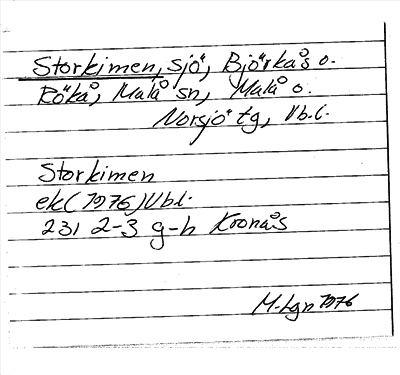 Storkimen, sjö, Björkås o.
Rökå, Malå sn, Malå o.
Norsjö tg, Vb.l.
Storkimen
ek (1976) Vbl.
23I 2-3 g-h Kronås
M-Lgn 1976